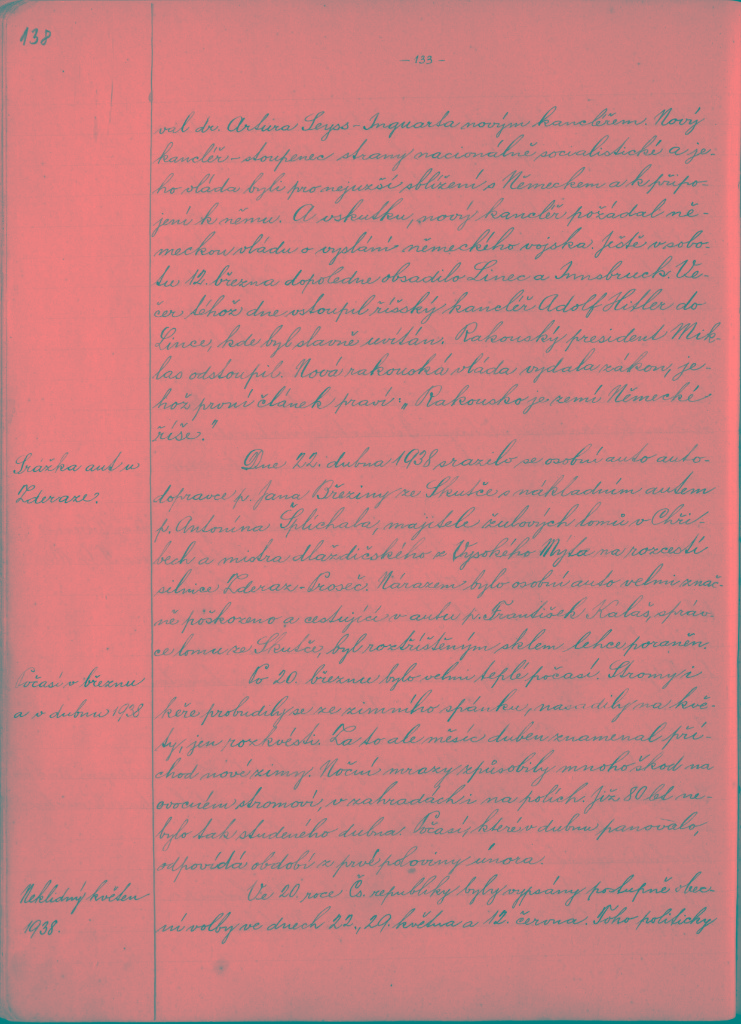 138
— 133 —
val dr. Artura Seyss-Inquarta novým kancléřem. Nový
kancléř – stoupenec strany nacionálně socialistické a je-
ho vláda byli pro nejužší sblížení s Německem a k připo-
jení k němu. A vskutku, nový kancléř požádal ně-
meckou vládu o vyslání německého vojska. Ještě v sobo-
tu 12. března dopoledne obsadilo Linec a Innsbruck. Ve-
čer téhož dne vstoupil říšský kancléř Adolf Hitler do
Lince, kde byl slavně uvítán. Rakouský president Mik-
las odstoupil. Nová rakouská vláda vydala zákon, je-
hož první článek praví: „Rakousko je zemí Německé
říše."
Srážka aut u
Zderaze.
Dne 22. dubna 1938 srazilo se osobní auto auto-
dopravce p. Jana Březiny ze Skutče s nákladním autem
p. Antonína Šplíchala, majitele žulových lomů v Chři-
bech a mistra dlaždičského z Vysokého Mýta na rozcestí
silnice Zderaz-Proseč. Nárazem bylo osobní auto velmi znač-
ně poškozeno a cestující v autu p. František Kalaš, správ-
ce lomu ze Skutče, byl roztříštěným sklem lehce poraněn.
Počasí v březnu
a v dubnu 1938
Po 20. březnu bylo velmi teplé počasí. Stromy i
keře probudily se ze zimního spánku, nasadily na kvě-
ty, jen rozkvésti. Za to ale měsíc duben znamenal pří-
chod nové zimy. Noční mrazy způsobily mnoho škod na
ovocném stromoví, v zahradách i na polích. Již 80 let ne-
bylo tak studeného dubna. Počasí, které v dubnu panovalo,
odpovídá období z prvé poloviny února.
Neklidný květen
1938.
Ve 20. roce Čs. republiky byly vypsány postupně obec-
ní volby ve dnech 22., 29. května a 12. června. Toho politicky